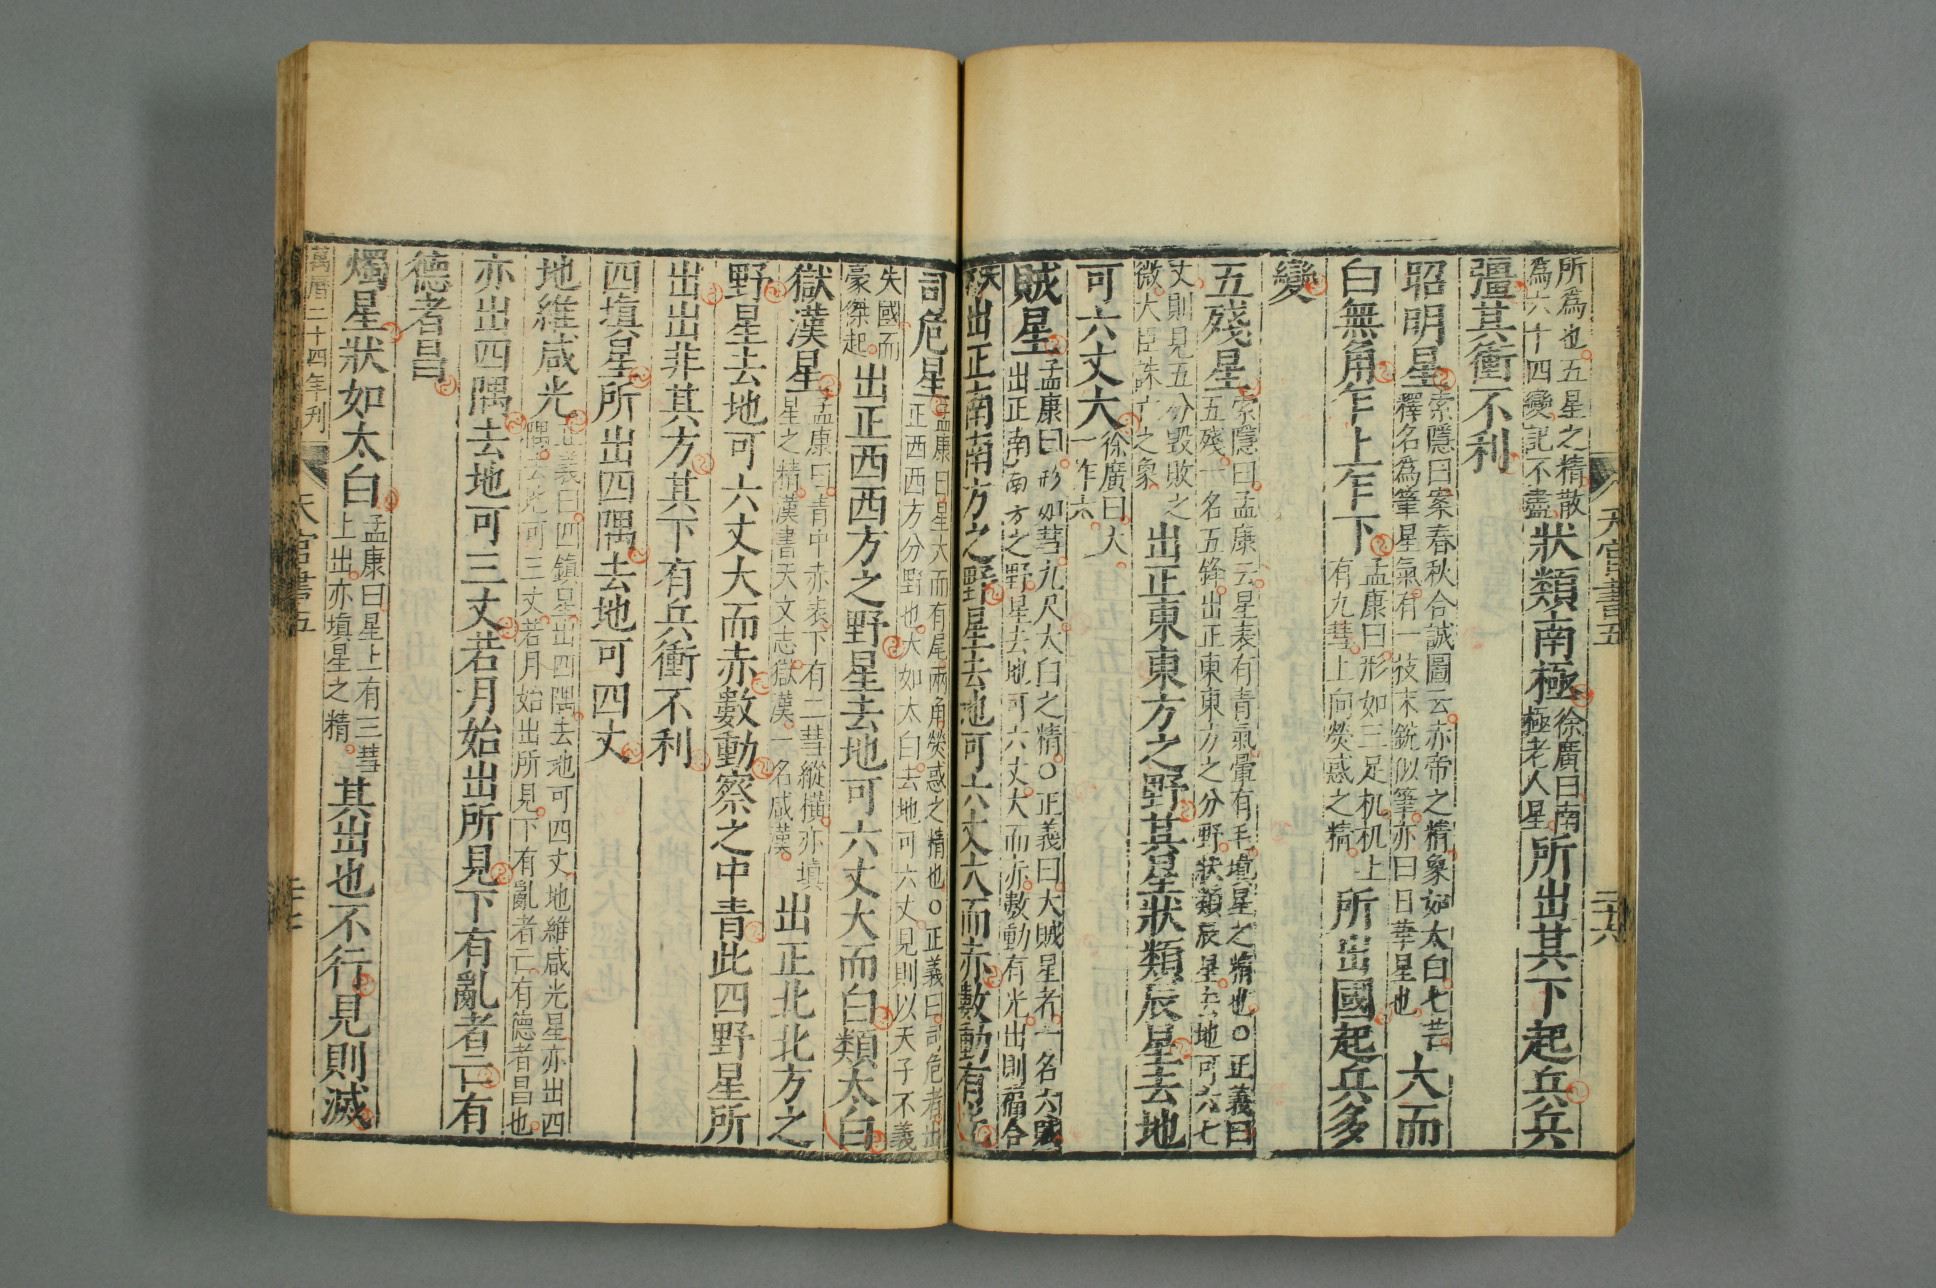 天官書五 二十六
所為也五星之精散為六十四變記不盡狀類南極徐廣曰南極老人星所出其下起兵兵
彊其衝不利
昭明星索隱曰案春秋合誠圖云赤帝之精象如太白七芒釋名為筆星氣有一枝末銳似筆亦曰日華星也大而
白無角乍上乍下孟康曰形如三足机机上有九彗上向熒惑之精所出國起兵多
變
五殘星索隱曰孟康云星表有青氣暈有毛填星之精也○正義曰五殘一名五鋒出正東東方之分野狀類辰星去地可六七
丈則見五分毀敗之微大臣誅亡之象出正東東方之野其星狀類辰星去地
可六丈大徐廣曰大一作六
賊星孟康曰形如彗九尺太白之精○正義曰大賊星者一名六賊出正南南方之野星去地可六丈大而赤數動有光出則禍合天下
出正南南方之野星去地可六丈大而赤數動有光
司危星孟康曰星大而有尾兩角熒惑之精也○正義曰司危者出正西西方分野也大如太白去地可六丈見則以天子不義
失國而豪傑起出正西西方之野星去地可六丈大而白類太白
獄漢星孟康曰青中赤表下有二彗縱橫亦填星之精漢書天文志獄漢一名咸漢出正北北方之
野星去地可六丈大而赤數動察之中青此四野星所
出出非其方其下有兵衝不利
四填星所出四隅去地可四丈
地維咸光正義曰四鎮星出四隅去地可四丈地維咸光星亦出四隅去地可三丈若月始出所見下有亂者亡有德者昌也
亦出四隅去地可三丈若月始出所見下有亂者亡有
德者昌
燭星狀如太白孟康曰星上有三彗上出亦填星之精其出也不行見則滅
萬曆二十四年刊 天官書五 二十七